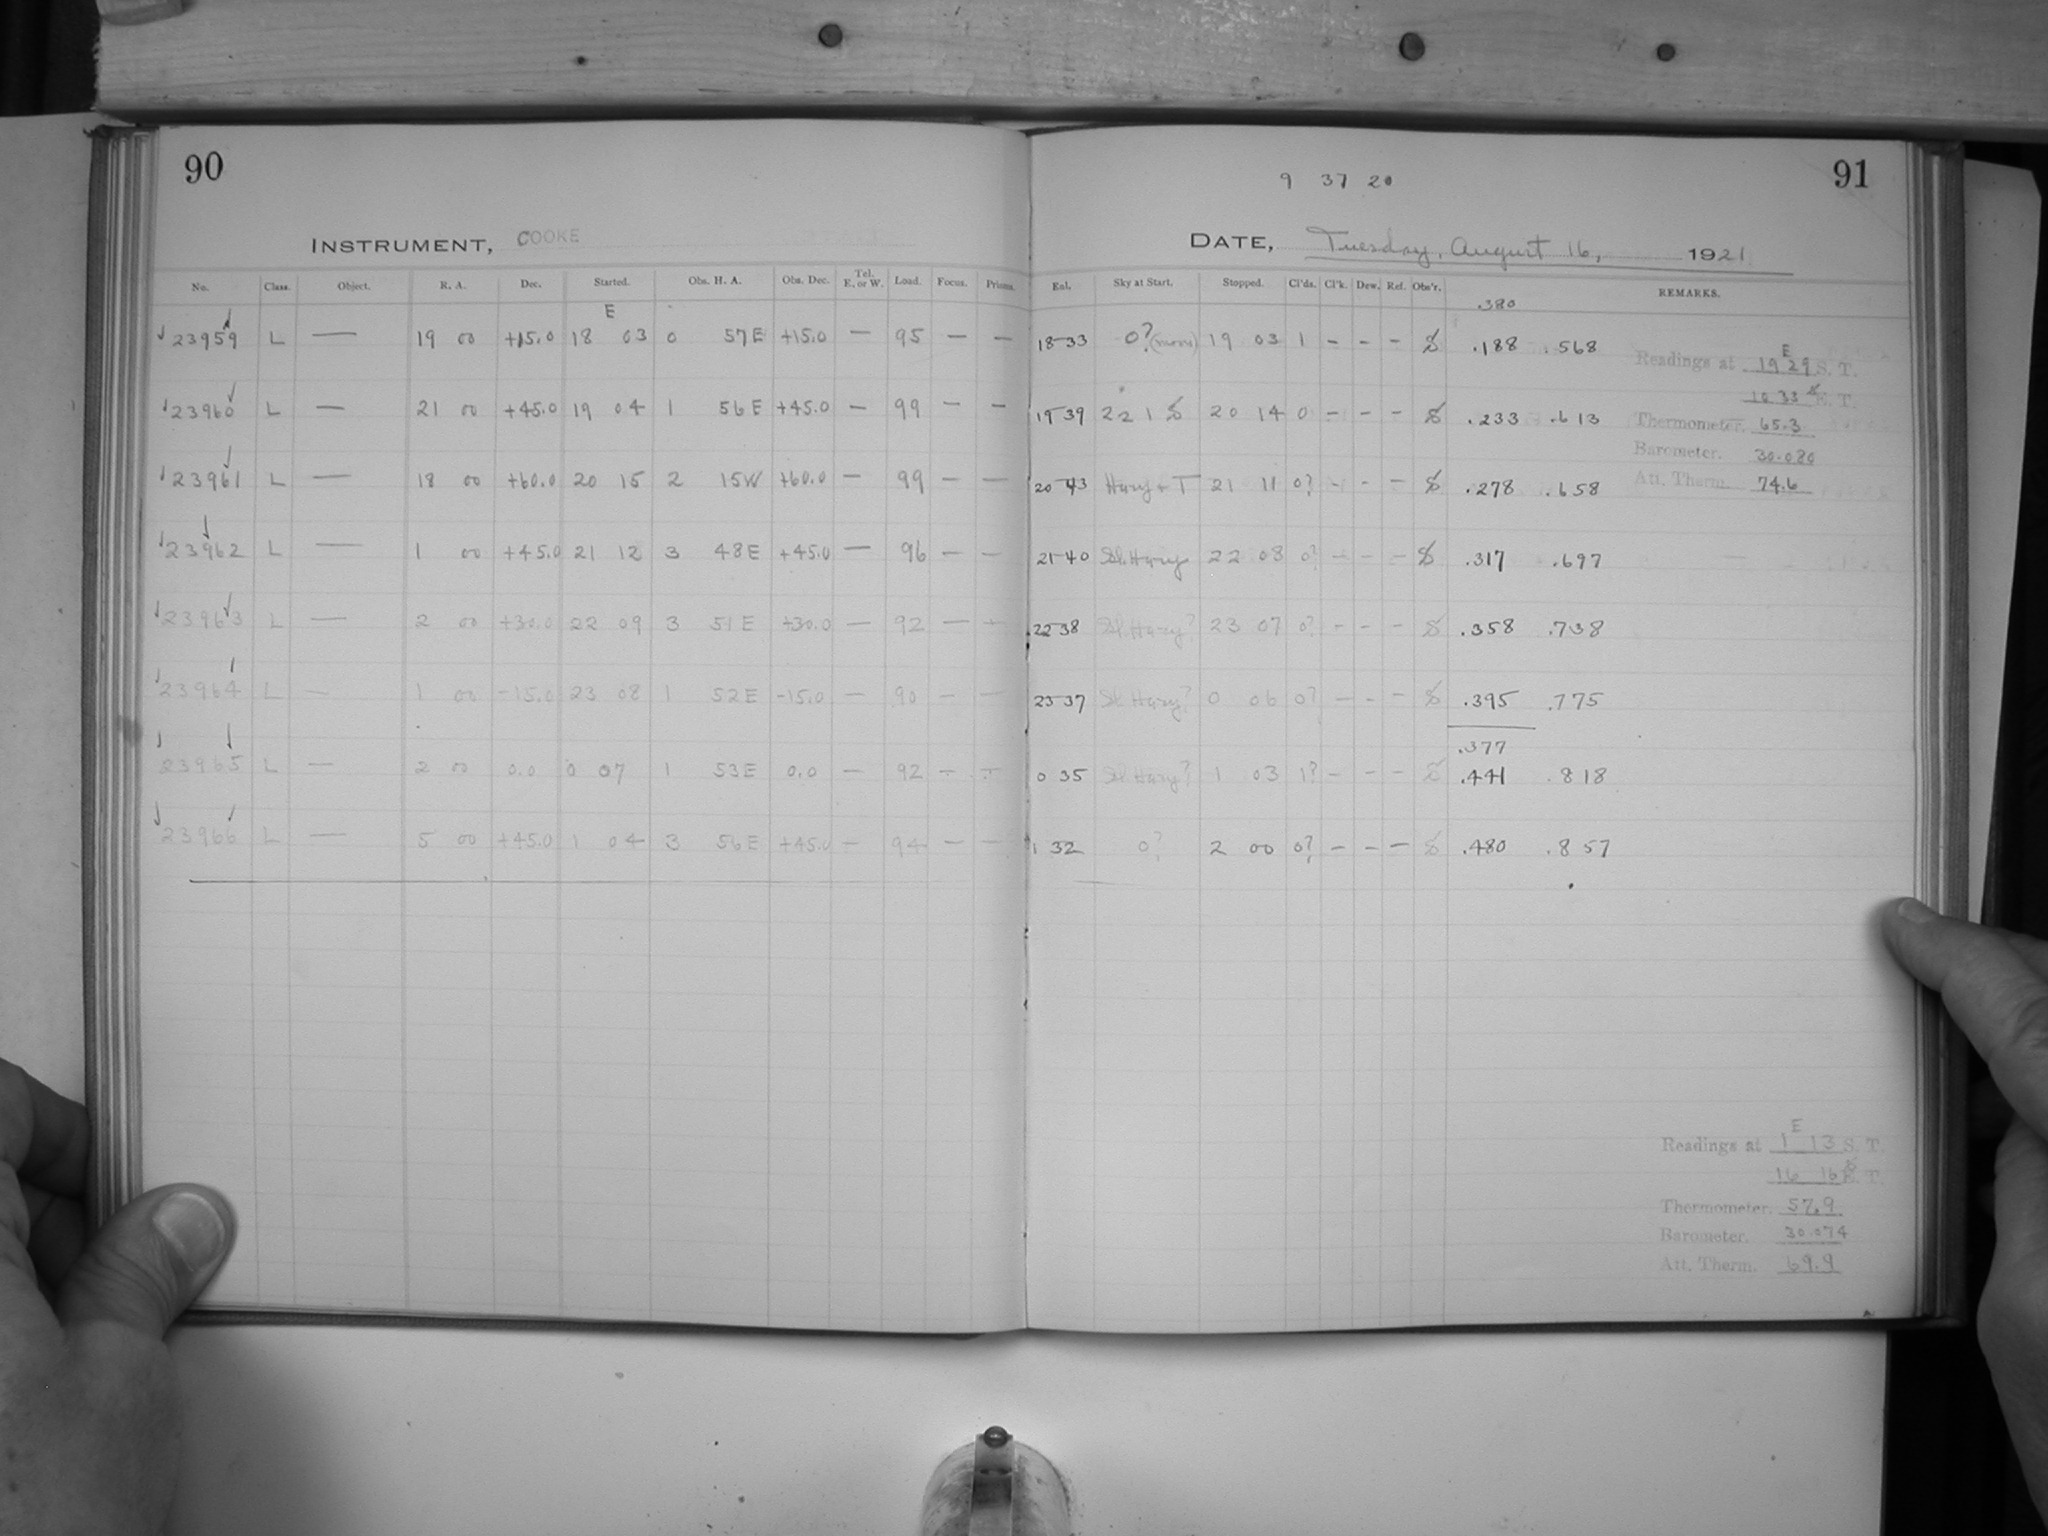 90
INSTRUMENT, COOKE
No. Class. Object. R. A. Dec. Started. Obs. H. A. Obs. Dec. Tel. E. or W. Load. Focus. Prisms.
E
23959 L — 19 00 +15.0 18 03 0 57E +15.0 — 95 — —
23960 L — 21 00 +45.0 19 04 1 56E +45.0 — 99 — —
23961 L — 18 00 +60.0 20 15 2 15W +60.0 — 99 — —
23962 L — 1 00 +45.0 21 12 3 48E +45.0 — 96 — —
23963 L — 2 00 +30.0 22 09 3 51E +30.0 — 92 — —
23964 L — 1 00 -15.0 23 08 1 52E -15.0 — 90 — —
23965 L — 2 00 0.0 0 07 1 53E 0.0 — 92 — —
23966 L — 5 00 +45.0 1 04 3 56E +45.0 — 94 — —
91
9 37 20
DATE, Tuesday, August 16, 1921
Enl. Sky at Start. Stopped. Cl'ds. Cl'k. Dew. Ref. Obs'r. REMARKS.
.380
18 33 0? (moon) 19 03 1 - - - .188 .568
19 39 2 2 1 20 14 0 - - - .233 .613
20 43 Hazy + T 21 11 0? - - - .278 .658
21 40 Sl. Hazy 22 08 0? - - - .317 .697
22 38 Sl. Hazy? 23 07 0? - - - .358 .738
23 37 Sl. Hazy? 0 06 0? - - - .395 .775
.377
0 35 Sl. Hazy? 1 03 1? - - - .441 .818
1 32 0? 2 00 0? - - - .480 .857
E
Readings at 19 29 S. T.
10 33 E. T.
Thermometer. 65.3
Barometer. 30.080
Att. Therm. 74.6
E
Readings at 1 13 S. T.
16 16 E. T.
Thermometer. 57.9
Barometer. 30.074
Att. Therm. 69.9